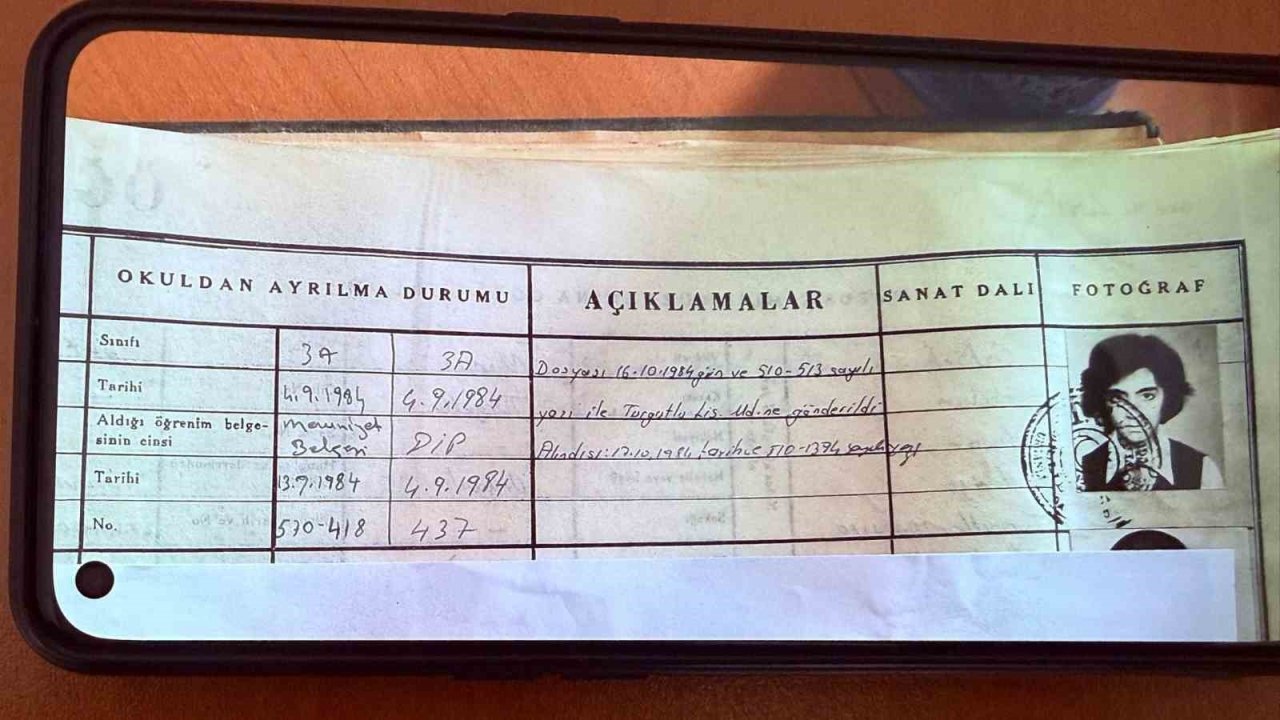 OKULDAN AYRILMA DURUMU
AÇIKLAMALAR
SANAT DALI
FOTOĞRAF
Sınıfı 3A 3A
Dosyası 16.10.1984 gün ve 510-513 sayılı
Tarihi 4.9.1984 4.9.1984
yazı ile Turgutlu Lis. Md.ne gönderildi
Aldığı öğrenim belge- Mezuniyet
sinin cinsi Belgesi DİP
Alındısı: 17.10.1984 tarih ve 510-1374
Tarihi 13.9.1984 4.9.1984
No. 570-418 437